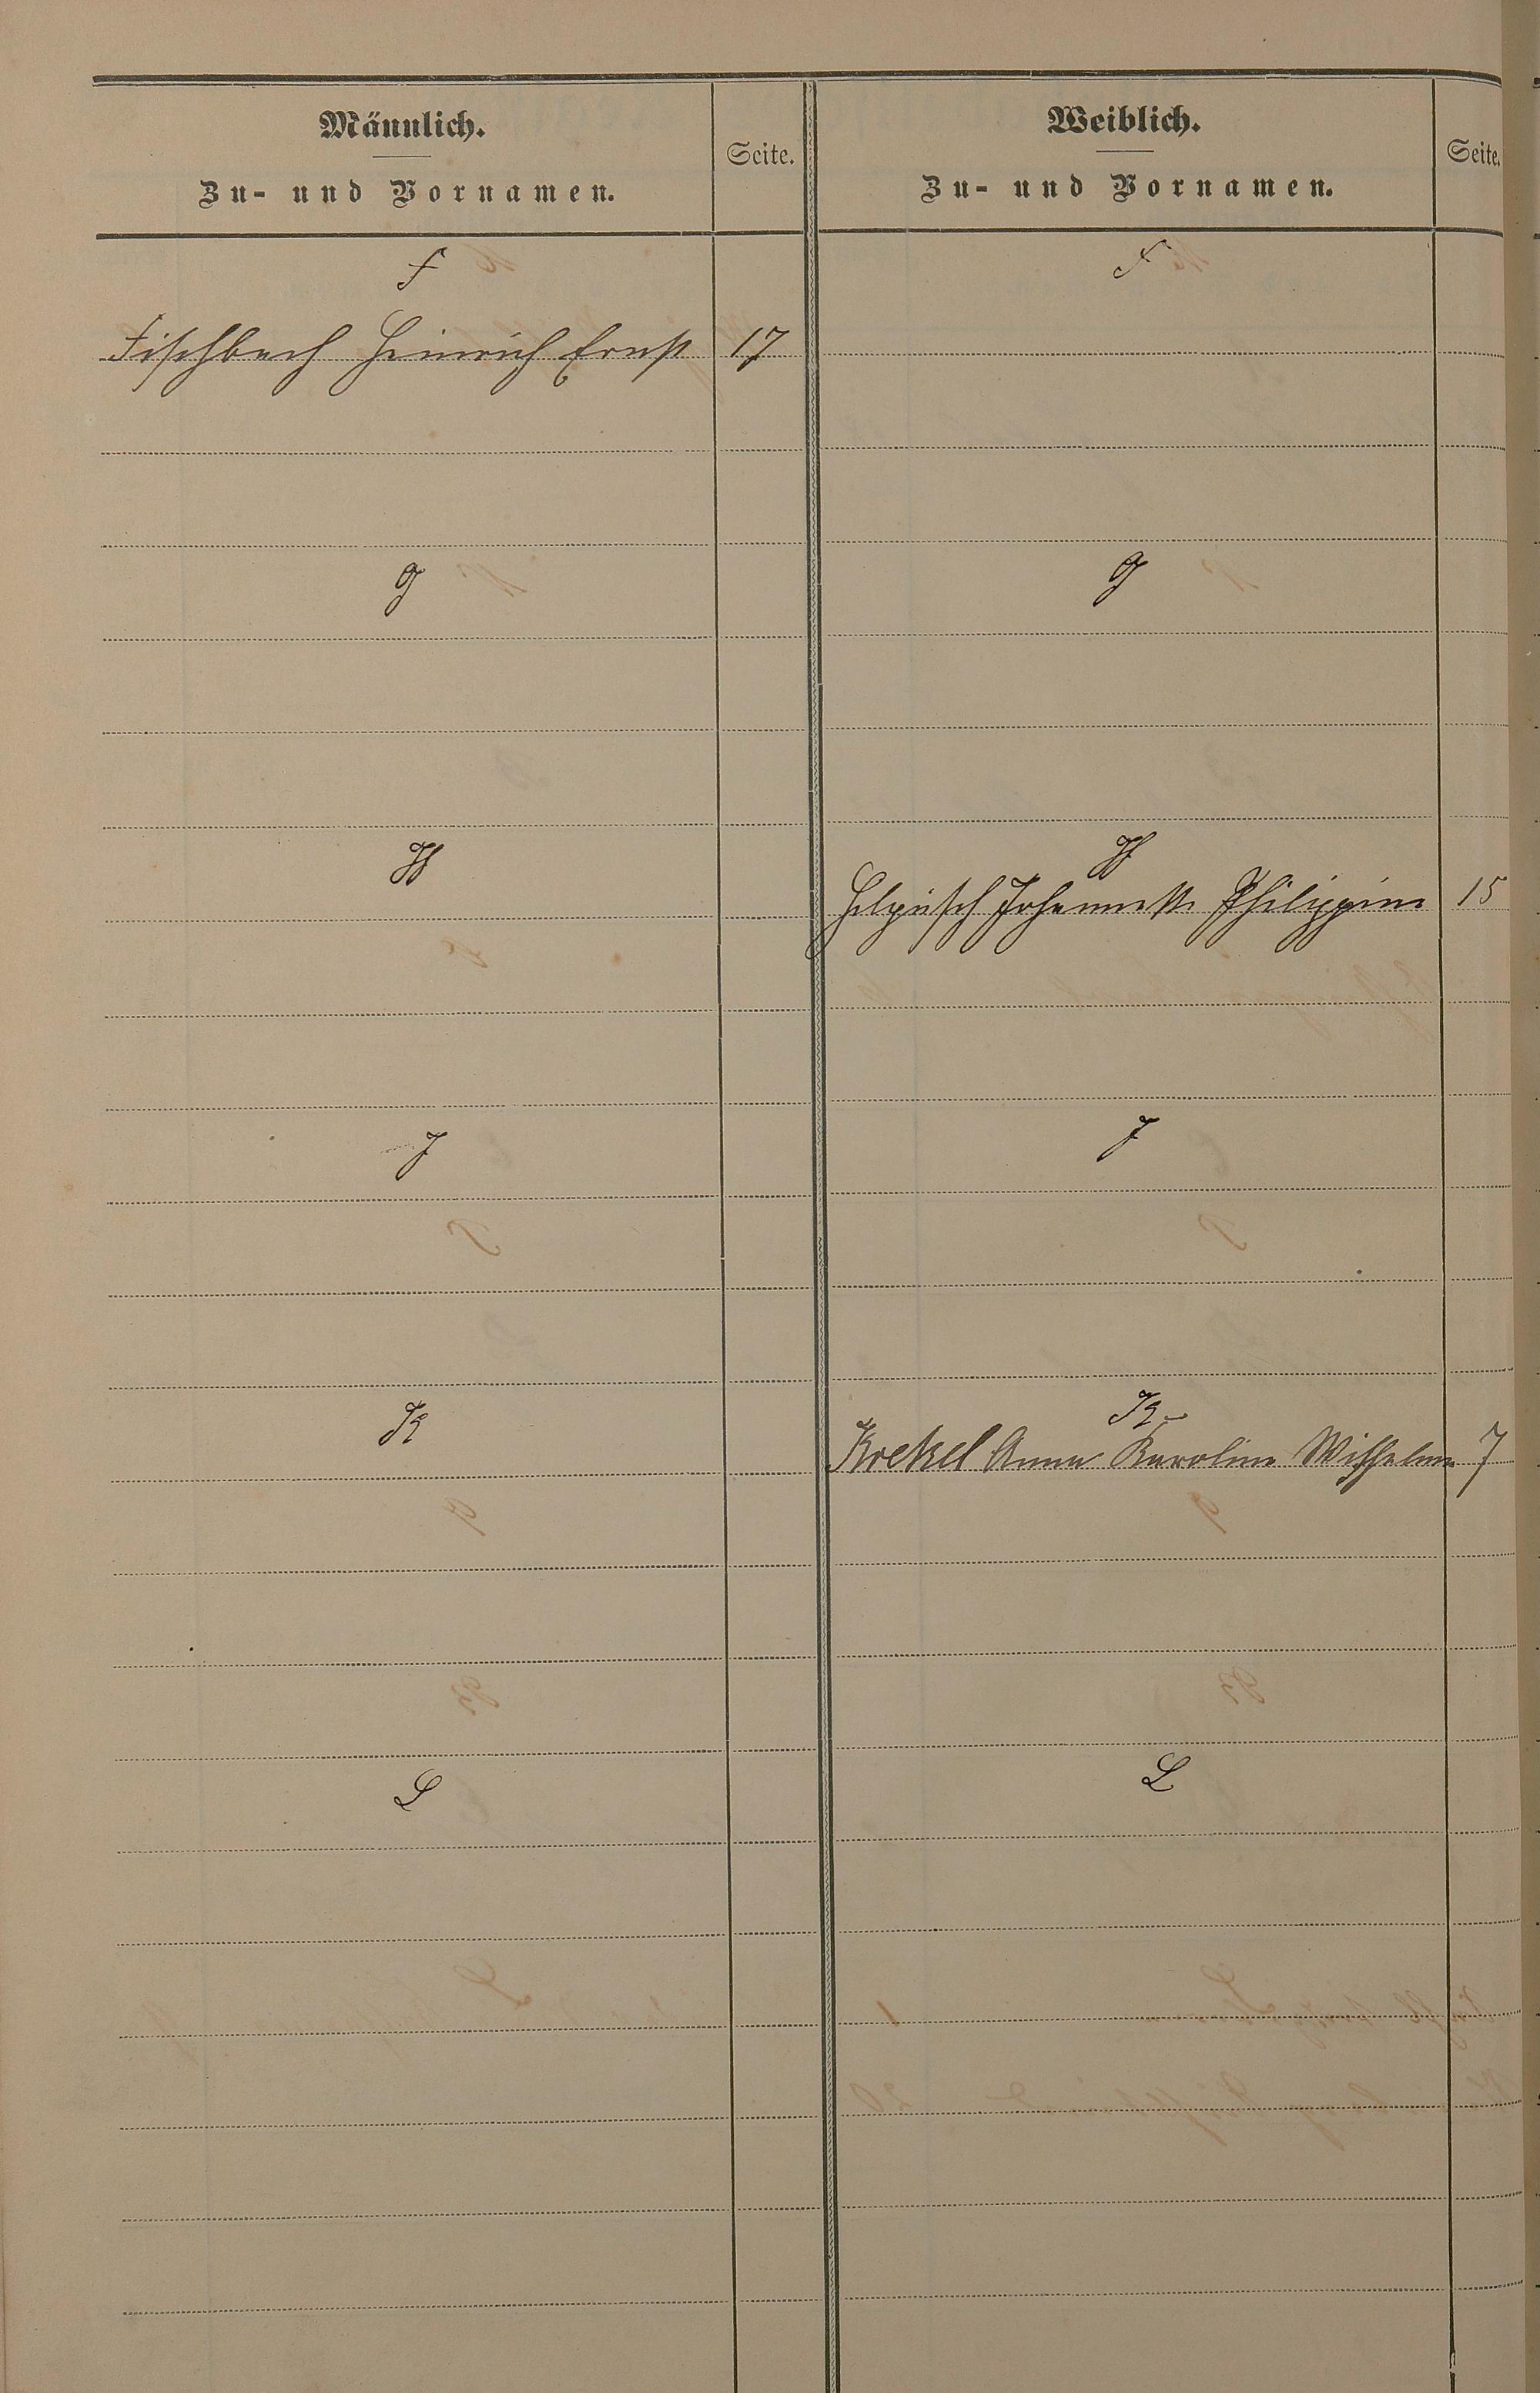 Männlich.
Zu- und Vornamen.
Seite.
Weiblich.
Zu- und Vornamen.
Seite.
F
F
Fischbach Heinrich Ernst 17
G
G
H
H
Helpisch Johannette Philippine 15
J
J
K
K
Krekel Anna Karoline Wilhelmine 7
L
L